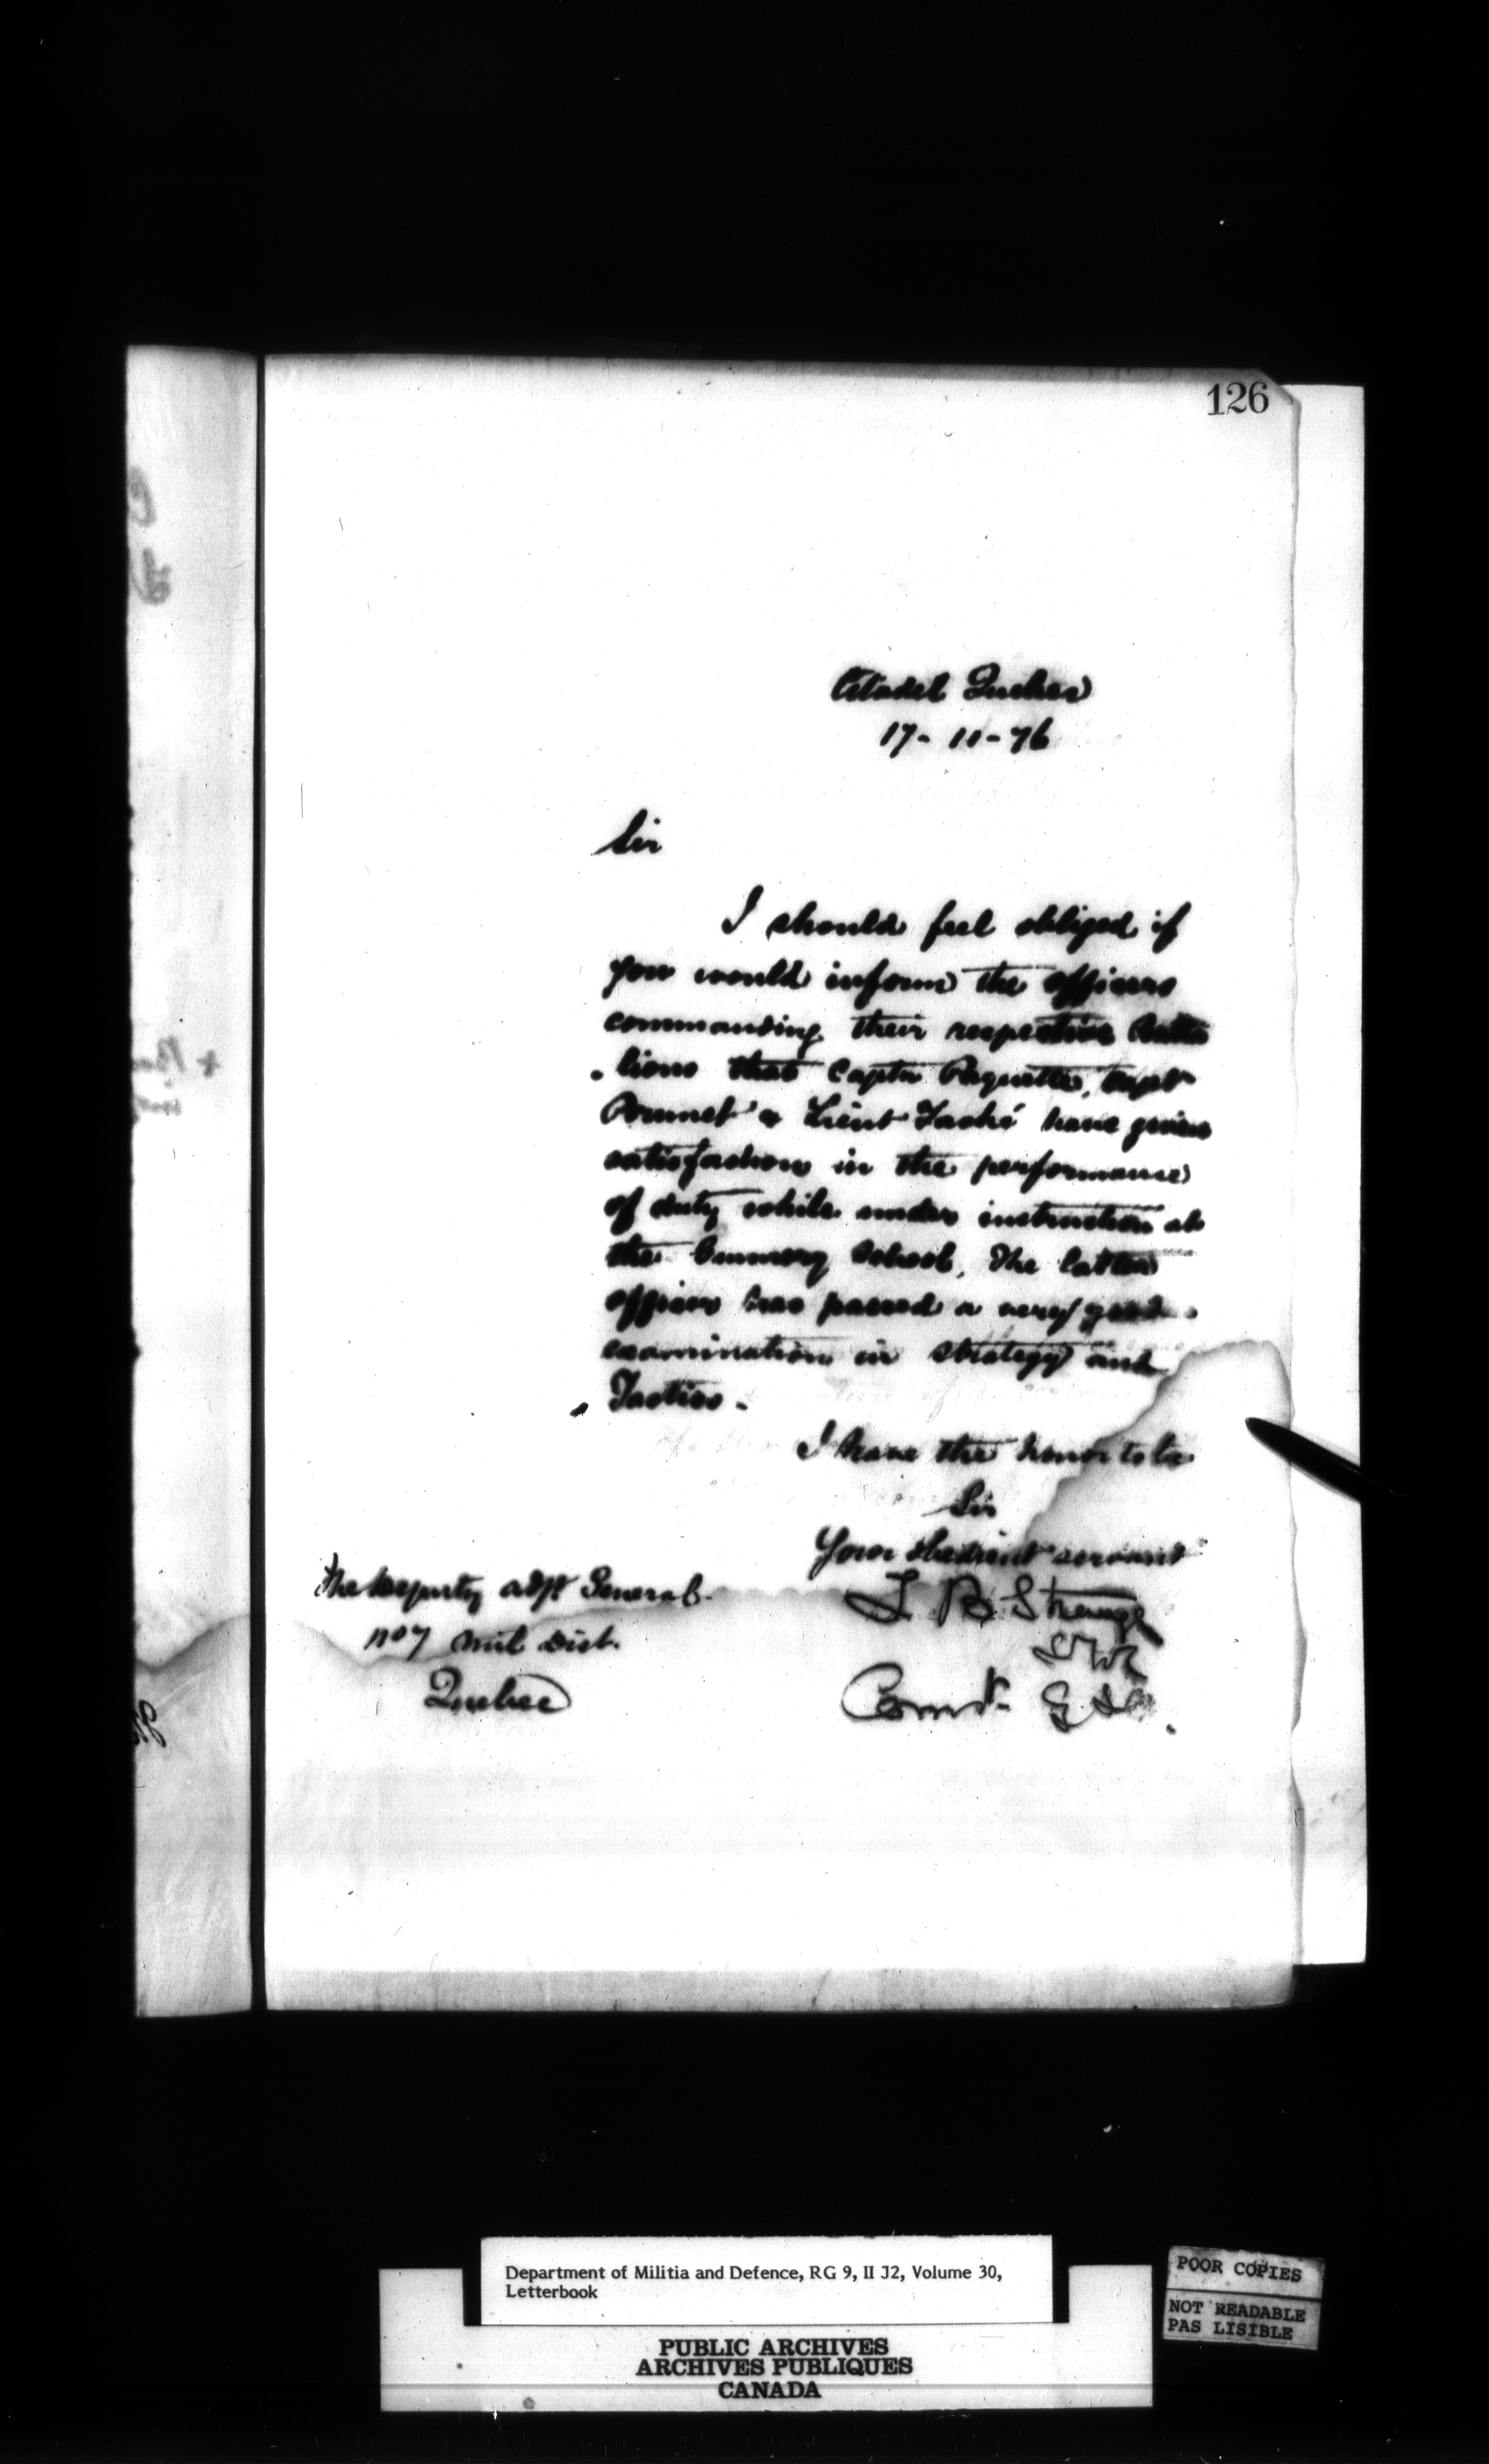 126
Citadel Quebec
17-11-76
Sir
I should feel obliged if
you would inform the officers
commanding their respective Batta
lions that Captn Paquette, Capt
Brunet & Lieut Taché have given
satisfaction in the performance
of duty while under instruction at
the Gunnery School. The latter
officer has passed a very good
examination in Strategy and
Tactics.
I have the honor to be
Sir
Your obedient servant
T B Strange
Comdt
The Deputy Adjt General
No 7 Mil Dist.
Quebec
Department of Militia and Defence, RG 9, II J2, Volume 30,
Letterbook
PUBLIC ARCHIVES
ARCHIVES PUBLIQUES
CANADA
POOR COPIES
NOT READABLE
PAS LISIBLE